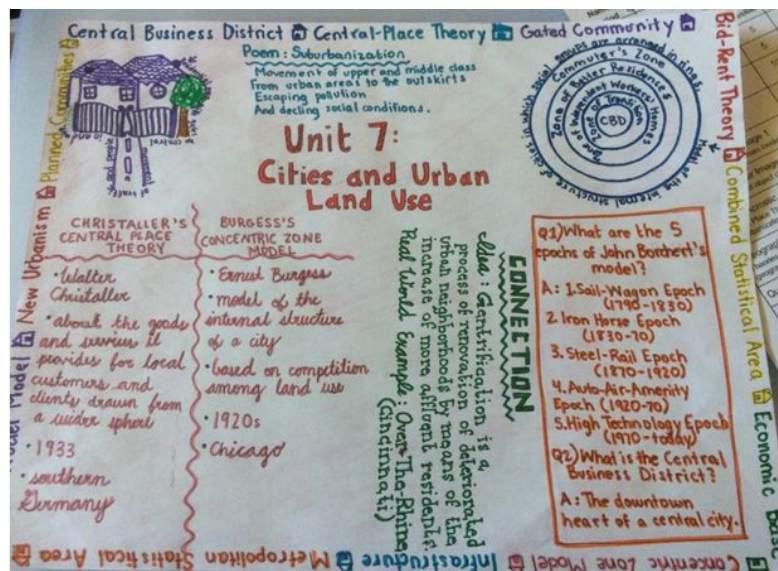 Central Business District Central-Place Theory Gated Community
Bid-Rent Theory Combined Statistical Area Economic
Concentric Zone Model Infrastructure Metropolitan Statistical Area
Model New Urbanism Planned Communities
Poem: Suburbanization
Movement of upper and middle class
From urban areas to the outskirts
Escaping pollution
And decling social conditions.
Unit 7:
Cities and Urban
Land Use
Model of the internal structure of cities in which social groups are arranged in rings.
Commuter's Zone
Zone of Better Residences
Zone of Independent Workers' Homes
Zone of Transition
CBD
CHRISTALLER'S
CENTRAL PLACE
THEORY
• Walter
Christaller
• about the goods
and services it
provides for local
customers and
clients drawn from
a wider sphere
• 1933
• southern
Germany
BURGESS'S
CONCENTRIC ZONE
MODEL
• Ernest Burgess
• model of the
internal structure
of a city
• based on competition
among land use
• 1920s
• Chicago
CONNECTION
Idea: Gentrification is a
process of renovation of deteriorated
urban neighborhoods by means of the
increase of more affluent residents.
Real World Example: Over-The-Rhine
(Cincinnati)
Q1) What are the 5
epochs of John Borchert's
model?
A: 1. Sail-Wagon Epoch
(1790-1830)
2. Iron Horse Epoch
(1830-70)
3. Steel-Rail Epoch
(1870-1920)
4. Auto-Air-Amenity
Epoch (1920-70)
5. High Technology Epoch
(1970-today)
Q2) What is the Central
Business District?
A: The downtown
heart of a central city.